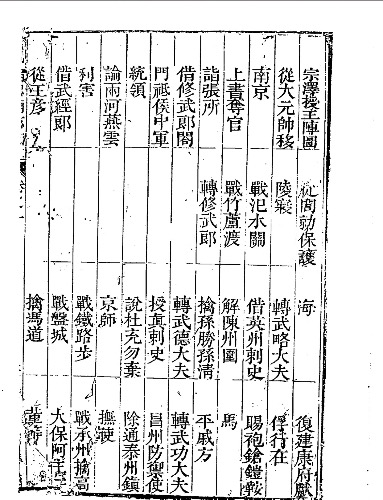 宗澤授王陣圖
從大元帥移
南京
上書奪官
詣張所
借修武郎閤
門祗候中軍
統領
論兩河燕雲
利害
借武經郎
從王彥
從閭勍保護
陵寢
戰汜水關
戰竹蘆渡
轉修武郎
海
轉武略大夫
借英州刺史
解陳州圍
擒孫勝孫清
轉武德大夫
授直刺史
說杜充勿棄
京師
戰鐵路步
戰盤城
擒馮道
復建康府獻
俘行在
賜袍鎗鎧鞍
馬
平戚方
轉武功大夫
昌州防禦使
除通泰州鎮
撫使
戰承州擒高
太保阿主里